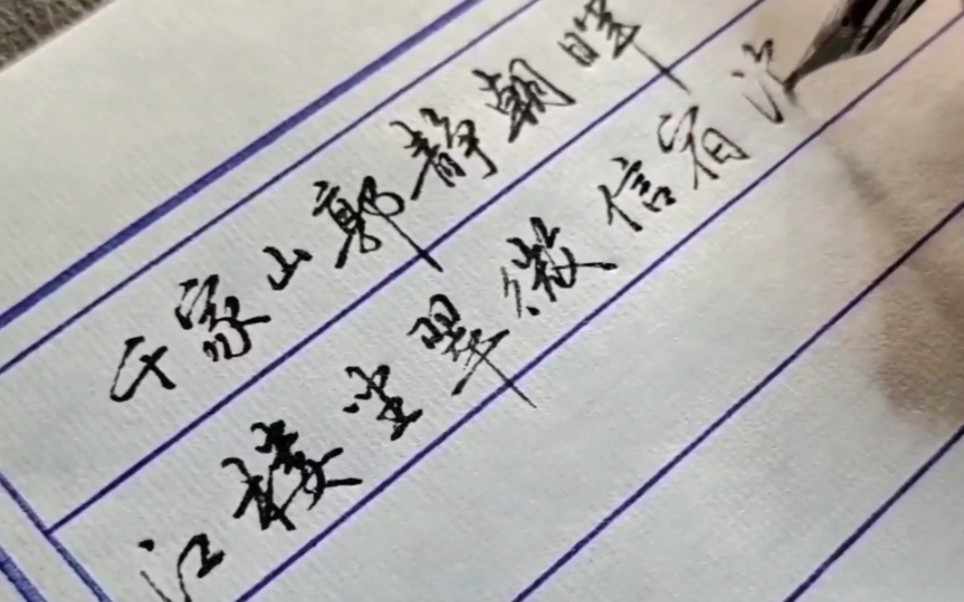 千家山郭静朝暉
江樓坐翠微信宿